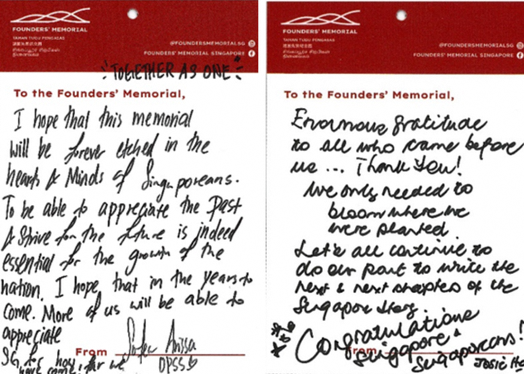 FOUNDERS' MEMORIAL
TAMAN TUGU PENGASAS
@FOUNDERSMEMORIALSG
FOUNDERS' MEMORIAL SINGAPORE
"TOGETHER AS ONE"
To the Founders' Memorial,
I hope that this memorial
will be forever etched in the
hearts & Minds of Singaporeans.
To be able to appreciate the Past
& Strive for the future is indeed
essential for the growth of the
nation. I hope that in the years to
come. More of us will be able to
appreciate
From
FOUNDERS' MEMORIAL
TAMAN TUGU PENGASAS
@FOUNDERSMEMORIALSG
FOUNDERS' MEMORIAL SINGAPORE
To the Founders' Memorial,
Enormous Gratitude
to all who came before
us ... Thank You!
We only needed to
bloom where we
were planted.
Let's all continue to
do our part to write the
next & next chapters of the
Singapore Story.
Congratulations
Singapore &
Singaporeans!
From
Josie